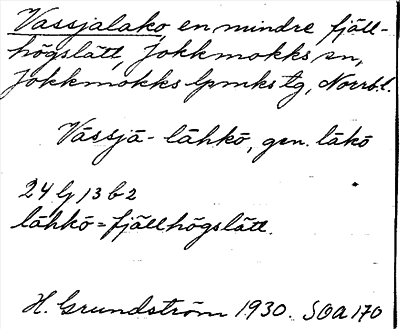 Vassjalako, en mindre fjäll-
högslätt, Jokkmokks sn,
Jokkmokks lpmks tg, Norrb. l.
Vássjá-láhkō, gen. lákō
24 g 13 b 2
láhkō = fjällhögslätt.
H. Grundström 1930. SOA 170